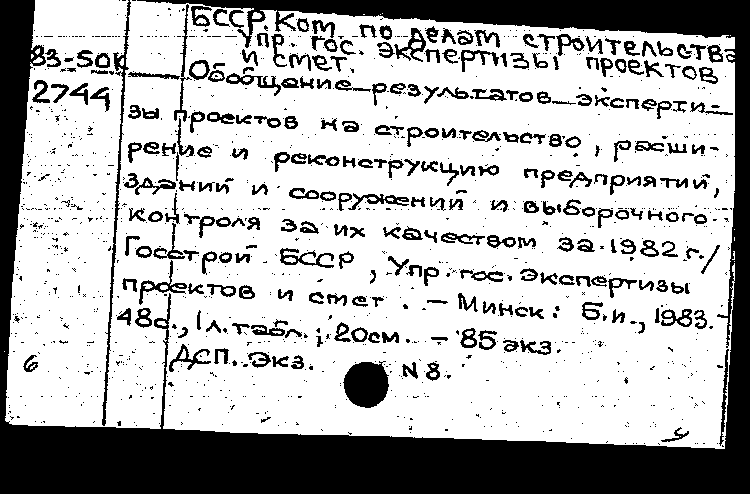 БССР. Ком. по делам строительства
Упр. гос. экспертизы проектов
и смет.
83-50К
2744
Обобщение результатов эксперти-
зы проектов на строительство, расши-
рение и реконструкцию предприятий,
зданий и сооружений и выборочного
контроля за их качеством за 1982 г./
Госстрой БССР, Упр. гос. экспертизы
проектов и смет. – Минск: Б.и., 1983.-
48с., 1 л. табл.; 20см. – 85 экз.
ДСП. Экз. N 8.
6